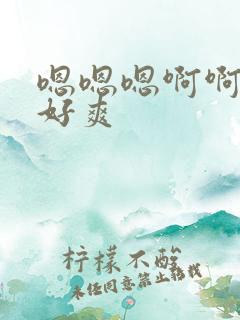 嗯嗯嗯啊啊
好爽
柠檬不酸
未经同意禁止转载